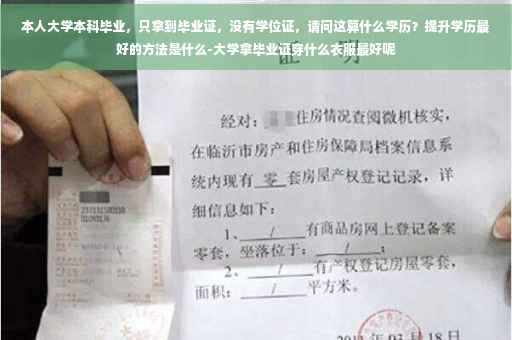 本人大学本科毕业，只拿到毕业证，没有学位证，请问这算什么学历？提升学历最
好的方法是什么-大学拿毕业证穿什么衣服最好呢
证 明
经对：住房情况查阅微机核实，
在临沂市房产和住房保障局档案信息系
统内现有 零 套房屋产权登记记录，详
细信息如下：
1、 / 有商品房网上登记备案
零套，坐落位于： / ；
2、 / 有产权登记房屋零套，
面积： / 平方米。
03月18日